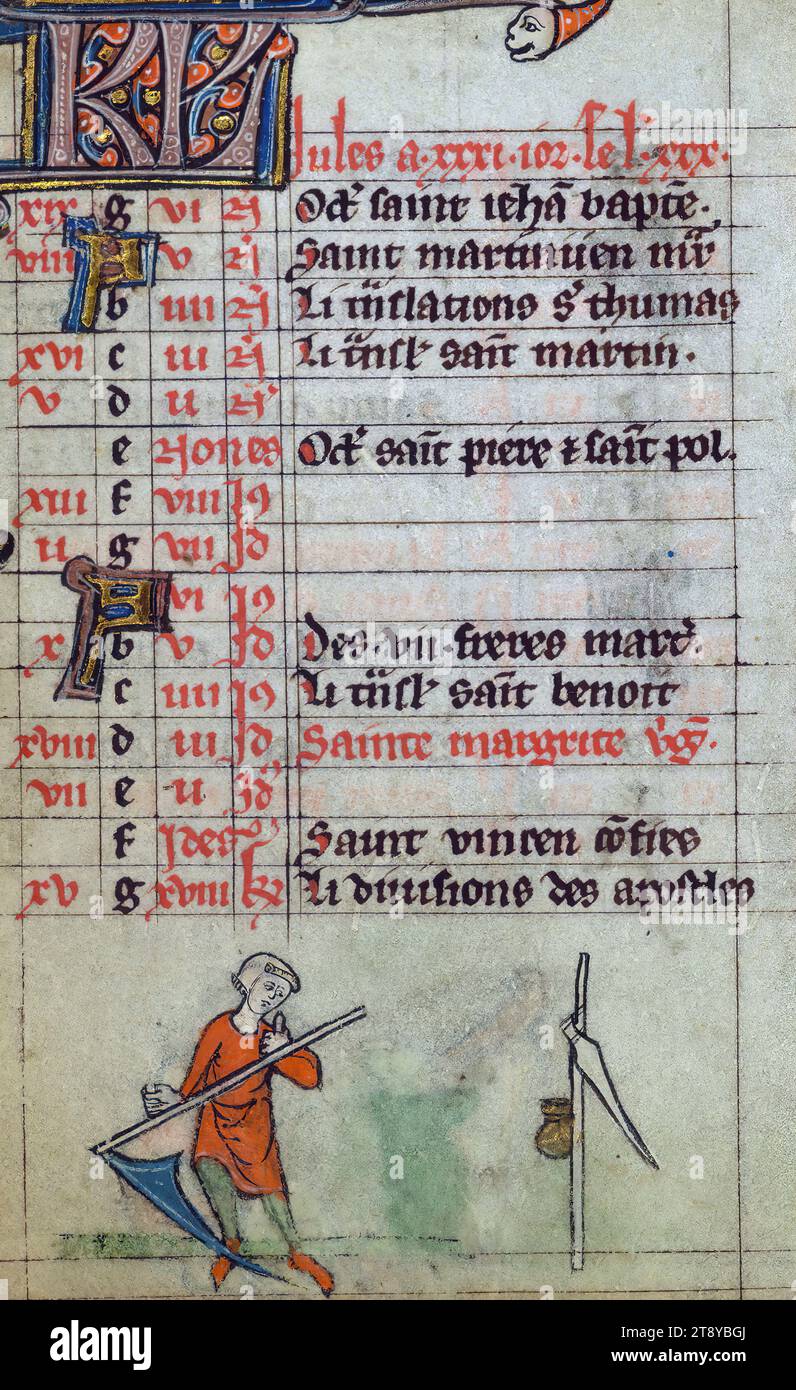 KL
Jules a·xxxi·ior·se l'·xxx·
xix g vi N Oct' saint iehã bapte·
viii A v N Saint martiniien mr
b iiii N Li trãslations s' thumas
xvi c iii N Li trãsl' saīt martin·
v d ii N
e Nones Oct' saīt piere ⁊ saīt pol·
xiii f viii Id
ii g vii Id
A vi Id
x b v Id Des·vii·freres mart'·
c iiii Id Li trãsl' saīt benoit
xviii d iii Id Sainte margrite v'g·
vii e ii Id
f Ides Saint vincen cõfies
xv g xviii kl Li diuisions des apostles
alamy
alamy
Image ID: 2T8YBGJ
www.alamy.com